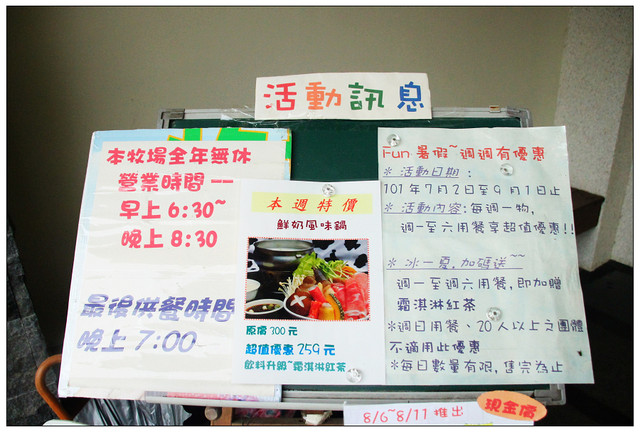 活動訊息
本牧場全年無休
營業時間——
早上6:30~
晚上8:30
最後供餐時間
晚上7:00
本週特價
鮮奶風味鍋
原價300元
超值優惠259元
飲料升級~霜淇淋紅茶
Fun暑假~週週有優惠
※活動日期:
101年7月2日至9月1日止
※活動內容:每週一物,
週一至六用餐享超值優惠!!
※冰一夏,加碼送~~
週一至週六用餐,即加贈
霜淇淋紅茶
※週日用餐、20人以上之團體
不適用此優惠
※每日數量有限,售完為止
8/6~8/11推出
現金價